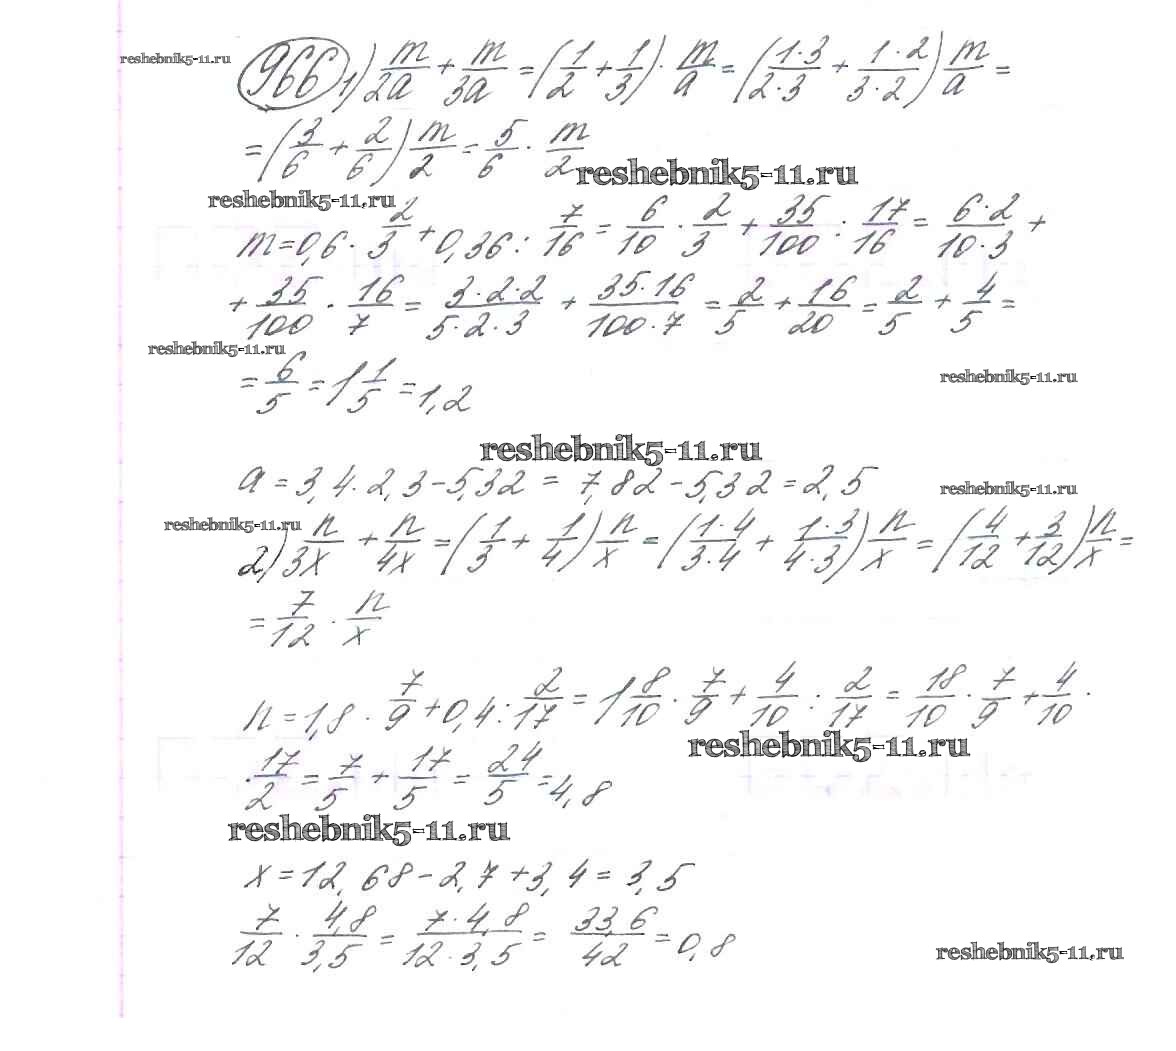 reshebnik5-11.ru
966 1) m/2a + m/3a = (1/2 + 1/3) · m/a = (1·3/2·3 + 1·2/3·2) m/a =
= (3/6 + 2/6) m/2 = 5/6 · m/2
reshebnik5-11.ru
reshebnik5-11.ru
m = 0,6 · 2/3 + 0,36 : 7/16 = 6/10 · 2/3 + 35/100 : 17/16 = 6·2/10·3 +
+ 35/100 · 16/7 = 3·2·2/5·2·3 + 35·16/100·7 = 2/5 + 16/20 = 2/5 + 4/5 =
reshebnik5-11.ru
= 6/5 = 1 1/5 = 1,2
reshebnik5-11.ru
reshebnik5-11.ru
a = 3,4 · 2,3 - 5,32 = 7,82 - 5,32 = 2,5
reshebnik5-11.ru
reshebnik5-11.ru
2) n/3x + n/4x = (1/3 + 1/4) n/x = (1·4/3·4 + 1·3/4·3) n/x = (4/12 + 3/12) n/x =
= 7/12 · n/x
n = 1,8 · 7/9 + 0,4 : 2/17 = 1 8/10 · 7/9 + 4/10 : 2/17 = 18/10 · 7/9 + 4/10 ·
reshebnik5-11.ru
· 17/2 = 7/5 + 17/5 = 24/5 = 4,8
reshebnik5-11.ru
x = 12,68 - 2,7 + 3,4 = 3,5
7/12 · 4,8/3,5 = 7·4,8/12·3,5 = 33,6/42 = 0,8
reshebnik5-11.ru